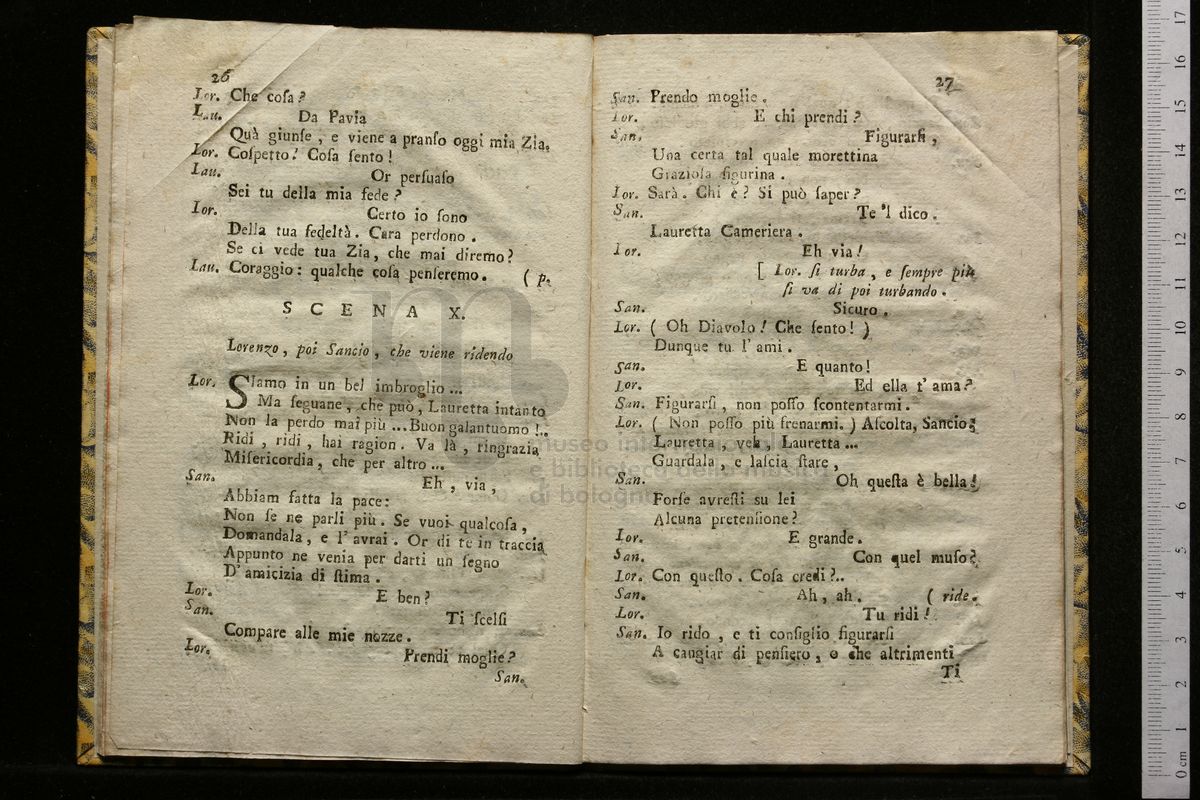 26
Lor. Che coſa?
Lau. Da Pavia
Quà giunſe, e viene a pranſo oggi mia Zia.
Lor. Coſpetto! Coſa ſento!
Lau. Or perſuaſo
Sei tu della mia fede?
Lor. Certo io ſono
Della tua fedeltà. Cara perdono.
Se ci vede tua Zia, che mai diremo?
Lau. Coraggio: qualche coſa penſeremo. (p.
SCENA X.
Lorenzo, poi Sancio, che viene ridendo
Lor. SIamo in un bel imbroglio...
Ma ſeguane, che può, Lauretta intanto
Non la perdo mai più... Buon galantuomo!..
Ridi, ridi, hai ragion. Va là, ringrazia
Miſericordia, che per altro...
San. Eh, via,
Abbiam fatta la pace:
Non ſe ne parli più. Se vuoi qualcoſa,
Domandala, e l' avrai. Or di te in traccia
Appunto ne venia per darti un ſegno
D' amicizia di ſtima.
Lor. E ben?
San. Ti ſcelſi
Compare alle mie nozze.
Lor. Prendi moglie?
San.
27
San. Prendo moglie.
Lor. E chi prendi?
San. Figurarſi,
Una certa tal quale morettina
Grazioſa figurina.
Lor. Sarà. Chi è? Si può ſaper?
San. Te 'l dico.
Lauretta Cameriera.
Lor. Eh via!
[ Lor. ſi turba, e ſempre più
ſi va di poi turbando.
San. Sicuro.
Lor. (Oh Diavolo! Che ſento!)
Dunque tu l' ami.
San. E quanto!
Lor. Ed ella t' ama?
San. Figurarſi, non poſſo ſcontentarmi.
Lor. (Non poſſo più frenarmi.) Aſcolta, Sancio:
Lauretta, veh, Lauretta...
Guardala, e laſcia ſtare,
San. Oh queſta è bella!
Forſe avreſti su lei
Alcuna pretenſione?
Lor. E grande.
San. Con quel muſo?
Lor. Con queſto. Coſa credi?..
San. Ah, ah. (ride.
Lor. Tu ridi!
San. Io rido, e ti conſiglio figurarſi
A cangiar di penſiero, o che altrimenti
Ti
museo
e biblioteca della musica
di bologna
0 cm 1 2 3 4 5 6 7 8 9 10 11 12 13 14 15 16 17